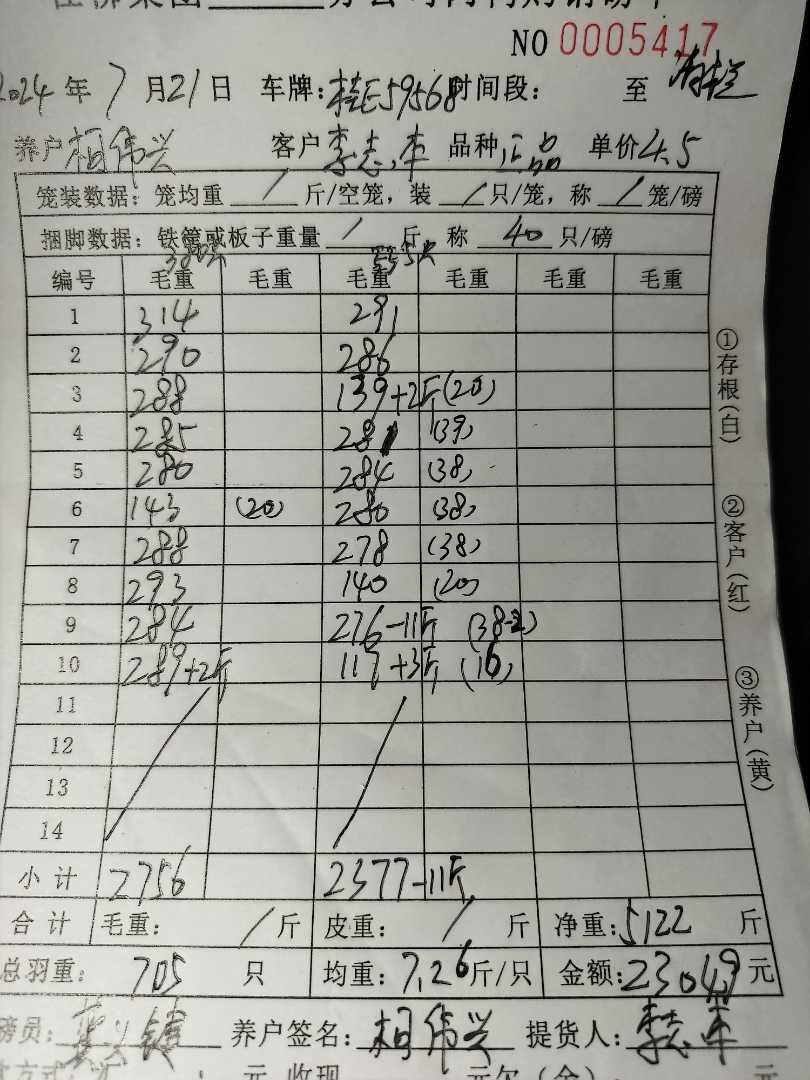 NO 0005417
2024年7月21日 车牌:桂E59568 时间段: 至
养户 客户 李志军 品种 正品 单价 4.5
笼装数据:笼均重 / 斤/空笼,装 / 只/笼,称 / 笼/磅
捆脚数据:铁筐或板子重量 / 斤,称 40 只/磅
编号 毛重 毛重 毛重 毛重 毛重 毛重
1 314 291
2 290 286
3 288 139+2斤 (20)
4 285 281 (39)
5 280 284 (38)
6 143 (20) 280 (38)
7 288 278 (38)
8 293 140 (20)
9 284 276-11斤 (38-2)
10 289+2斤 117+3斤 (16)
11
12
13
14
小计 2756 2377-11斤
合计 毛重: / 斤 皮重: / 斤 净重:5122 斤
总羽重: 705 只 均重:7.26斤/只 金额:23049元
磅员: 养户签名: 提货人:李志军
①存根(白)
②客户(红)
③养户(黄)